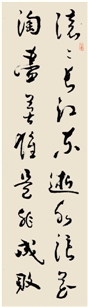 滚〻长江东逝水浪花
淘尽英雄是非成败